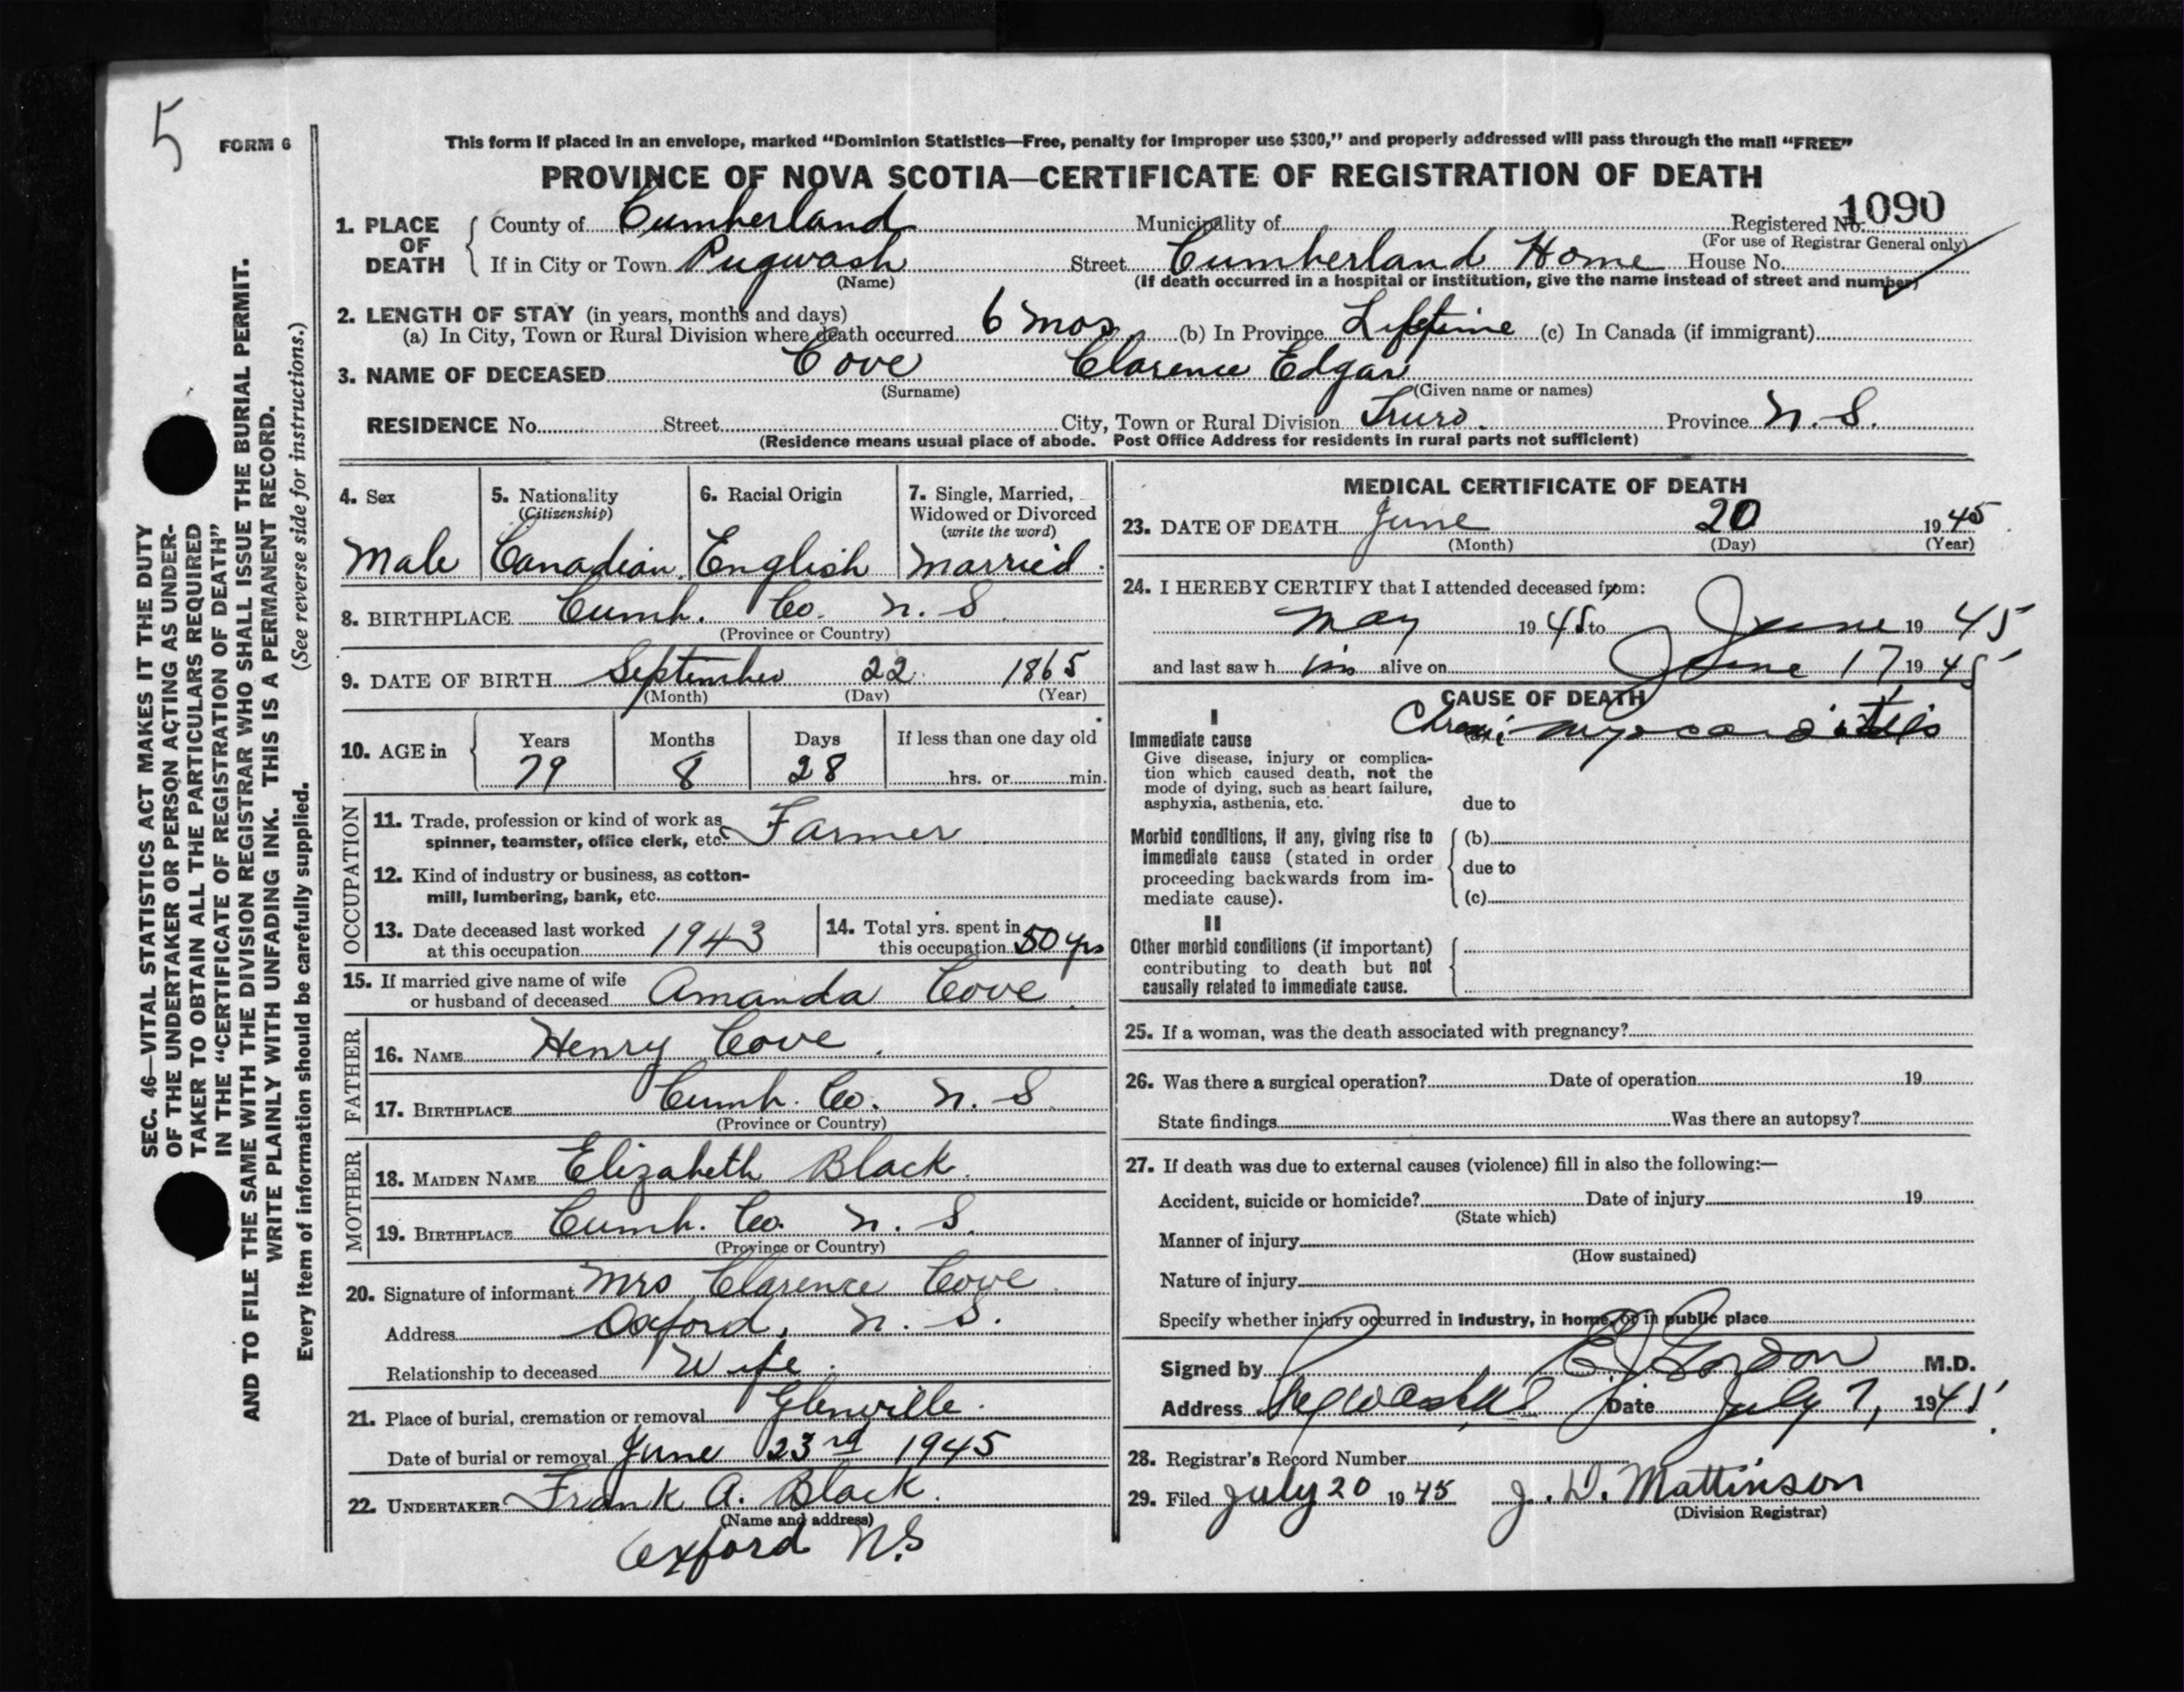 5
FORM 6
This form if placed in an envelope, marked “Dominion Statistics—Free, penalty for improper use $300,” and properly addressed will pass through the mail “FREE”
PROVINCE OF NOVA SCOTIA—CERTIFICATE OF REGISTRATION OF DEATH
1. PLACE OF DEATH
County of Cumberland Municipality of Registered No. 1090
(For use of Registrar General only)
If in City or Town Pugwash Street Cumberland Home House No.
(Name) (If death occurred in a hospital or institution, give the name instead of street and number)
2. LENGTH OF STAY (in years, months and days)
(a) In City, Town or Rural Division where death occurred 6 mos (b) In Province Lifetime (c) In Canada (if immigrant)
3. NAME OF DECEASED Cove Clarence Edgar
(Surname) (Given name or names)
RESIDENCE No. Street City, Town or Rural Division Truro. Province N. S.
(Residence means usual place of abode. Post Office Address for residents in rural parts not sufficient)
4. Sex
Male
5. Nationality
(Citizenship)
Canadian
6. Racial Origin
English
7. Single, Married,
Widowed or Divorced
(write the word)
Married
8. BIRTHPLACE Cumb. Co. N. S.
(Province or Country)
9. DATE OF BIRTH September 22 1865
(Month) (Day) (Year)
10. AGE in
Years Months Days If less than one day old
79 8 28 hrs. or min.
OCCUPATION
11. Trade, profession or kind of work as
spinner, teamster, office clerk, etc. Farmer
12. Kind of industry or business, as cotton-
mill, lumbering, bank, etc.
13. Date deceased last worked
at this occupation 1943
14. Total yrs. spent in
this occupation 50 yrs
15. If married give name of wife
or husband of deceased Amanda Cove
FATHER
16. NAME Henry Cove
17. BIRTHPLACE Cumb. Co. N. S.
(Province or Country)
MOTHER
18. MAIDEN NAME Elizabeth Black
19. BIRTHPLACE Cumb. Co. N. S.
(Province or Country)
20. Signature of informant Mrs Clarence Cove
Address Oxford, N. S.
Relationship to deceased Wife
21. Place of burial, cremation or removal Glenville
Date of burial or removal June 23rd 1945
22. UNDERTAKER Frank A. Black
(Name and address)
Oxford N.S
MEDICAL CERTIFICATE OF DEATH
23. DATE OF DEATH June 20 1945
(Month) (Day) (Year)
24. I HEREBY CERTIFY that I attended deceased from:
May 1945 to June 1945
and last saw him alive on June 17 1945
CAUSE OF DEATH
I
Immediate cause (a) Chronic myocarditis
Give disease, injury or complica-
tion which caused death, not the
mode of dying, such as heart failure,
asphyxia, asthenia, etc.
due to
Morbid conditions, if any, giving rise to
immediate cause (stated in order
proceeding backwards from im-
mediate cause).
(b)
due to
(c)
II
Other morbid conditions (if important)
contributing to death but not
causally related to immediate cause.
25. If a woman, was the death associated with pregnancy?
26. Was there a surgical operation? Date of operation 19
State findings Was there an autopsy?
27. If death was due to external causes (violence) fill in also the following:—
Accident, suicide or homicide? Date of injury 19
(State which)
Manner of injury
(How sustained)
Nature of injury
Specify whether injury occurred in industry, in home, or in public place
Signed by Gordon M.D.
Address Pugwash, N S Date July 7, 1945
28. Registrar's Record Number
29. Filed July 20 1945 J. D. Mattinson
(Division Registrar)
SEC. 46—VITAL STATISTICS ACT MAKES IT THE DUTY
OF THE UNDERTAKER OR PERSON ACTING AS UNDER-
TAKER TO OBTAIN ALL THE PARTICULARS REQUIRED
IN THE “CERTIFICATE OF REGISTRATION OF DEATH”
AND TO FILE THE SAME WITH THE DIVISION REGISTRAR WHO SHALL ISSUE THE BURIAL PERMIT.
WRITE PLAINLY WITH UNFADING INK. THIS IS A PERMANENT RECORD.
Every item of information should be carefully supplied. (See reverse side for instructions.)